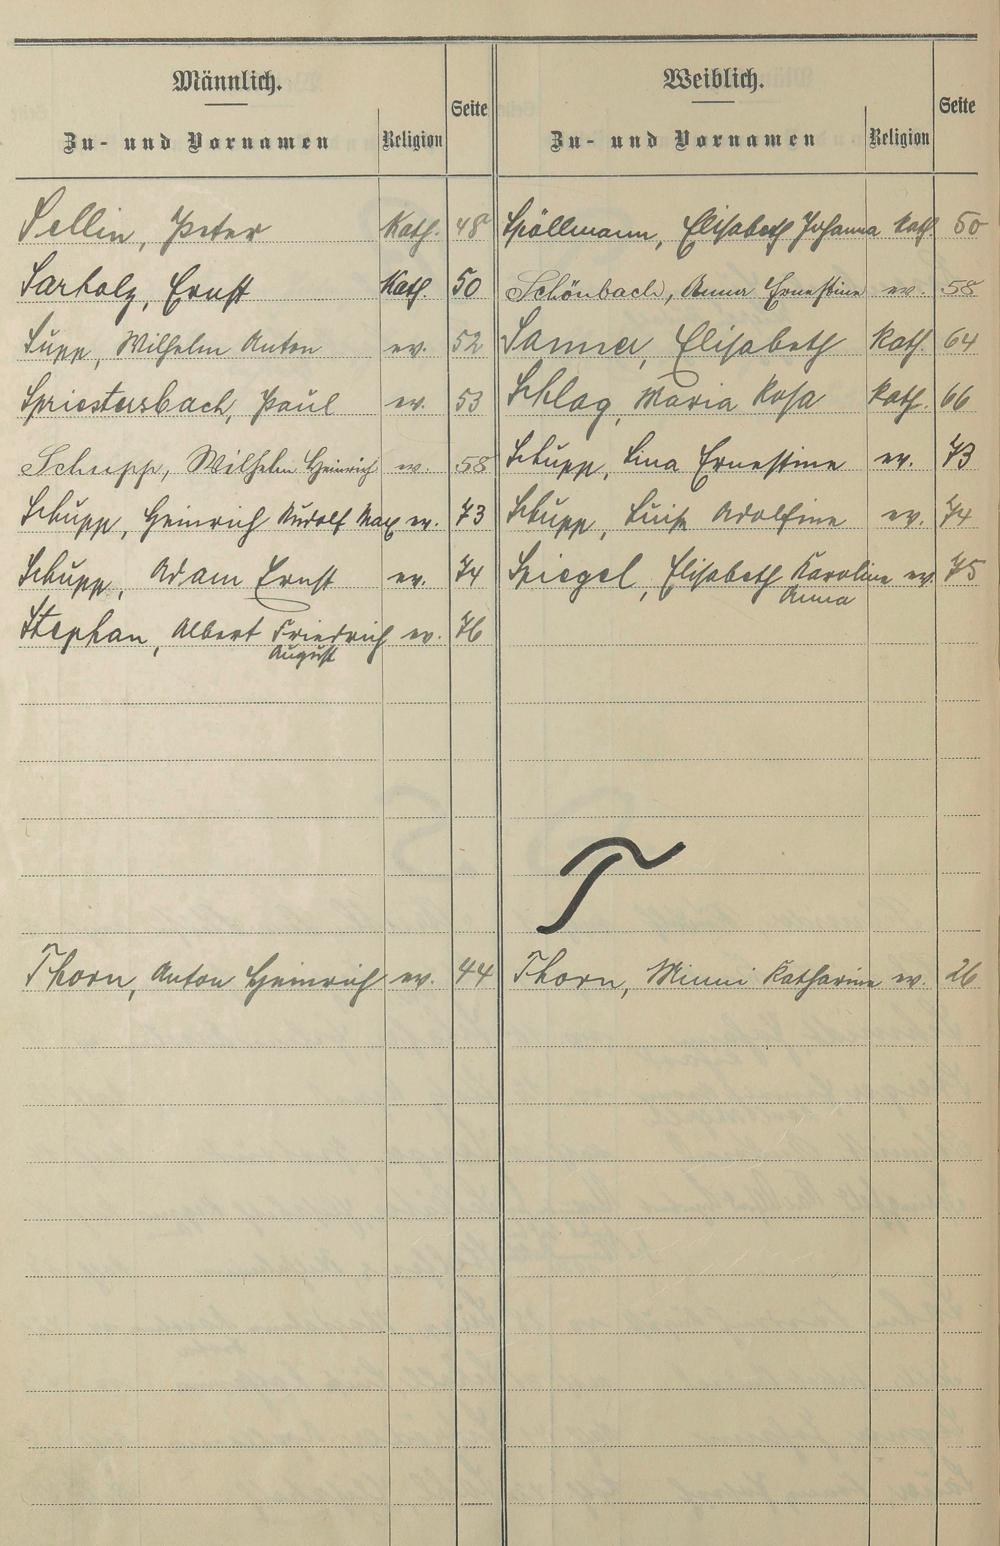 Männlich. Weiblich.
Seite Seite
Zu- und Vornamen Religion Zu- und Vornamen Religion
Sellin, Peter Kath. 48 Spöllmann, Elisabeth Johanna kath. 50
Sarholz, Ernst Kath. 50 Schönbach, Anna Ernestine ev. 58
Supp, Wilhelm Anton ev. 52 Sanner, Elisabeth kath. 64
Spriestersbach, Paul ev. 53 Schlag, Maria Rosa kath. 66
Schupp, Wilhelm Heinrich ev. 58 Schupp, Lina Ernestine ev. 73
Schupp, Heinrich Rudolf Max ev. 73 Schupp, Luise Adolfine ev. 74
Schupp, Adam Ernst ev. 74 Spiegel, Elisabeth Karoline ev. 75
Anna
Stephan, Albert Friedrich ev. 76
August
T
Thorn, Anton Heinrich ev. 44 Thorn, Minni Katharine ev. 26